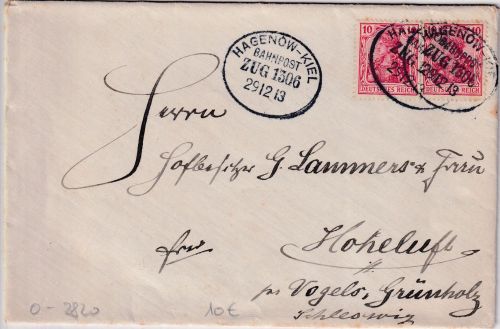 HAGENOW-KIEL
BAHNPOST
ZUG 1306
29 12 13
10 10
DEUTSCHES REICH DEUTSCHES REICH
HAGENOW-KIEL
BAHNPOST
ZUG 1306
29 12 13
Herrn
Hofbesitzer G. Lammers & Frau
frei
Hoheluft
per Vogels, Grünholz
Schleswig
0-2820
10€